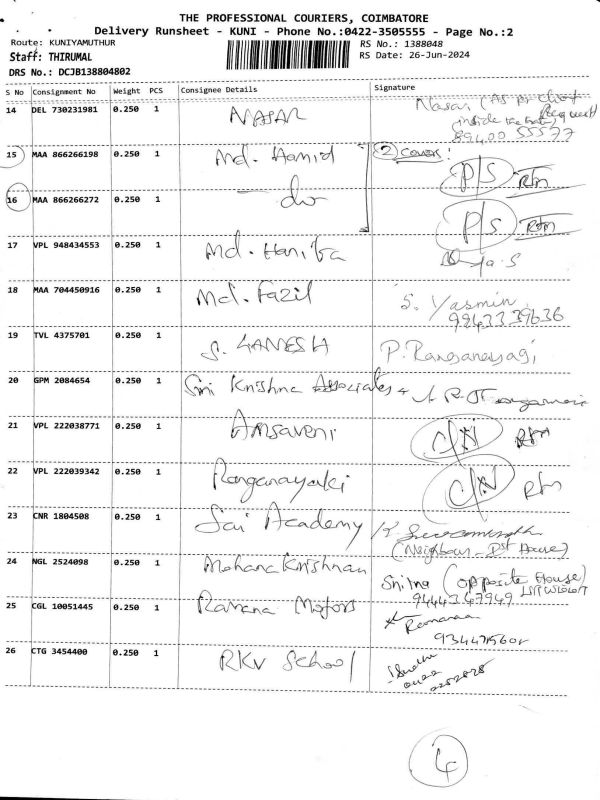 THE PROFESSIONAL COURIERS, COIMBATORE
Delivery Runsheet - KUNI - Phone No.:0422-3505555 - Page No.:2
Route: KUNIYAMUTHUR RS No.: 1388048
Staff: THIRUMAL RS Date: 26-Jun-2024
DRS No.: DCJB138804802
S No Consignment No Weight PCS Consignee Details Signature
14 DEL 730231981 0.250 1 NASAR Nasar (As per client Request
inside the
89400 55577
15 MAA 866266198 0.250 1 Md. Hamid (2) Covers: P/S Rtn
16 MAA 866266272 0.250 1 do P/S Rtn
17 VPL 948434553 0.250 1 Md. Hanifa
18 MAA 704450916 0.250 1 Md. Fazil S. Yasmin
99433 39636
19 TVL 4375701 0.250 1 S. GANESH P. Ranganayagi
20 GPM 2084654 0.250 1 Sri Krishna Associates
21 VPL 222038771 0.250 1 Amsaveni C/N Rtn
22 VPL 222039342 0.250 1 Ranganayaki C/N Rtn
23 CNR 1804508 0.250 1 Sai Academy K
(Neighbour House)
24 NGL 2524098 0.250 1 Mohana Krishnan (Opposite House)
9444347949
25 CGL 10051445 0.250 1 Ramana Motors Ramanan
26 CTG 3454400 0.250 1 RKV School
4